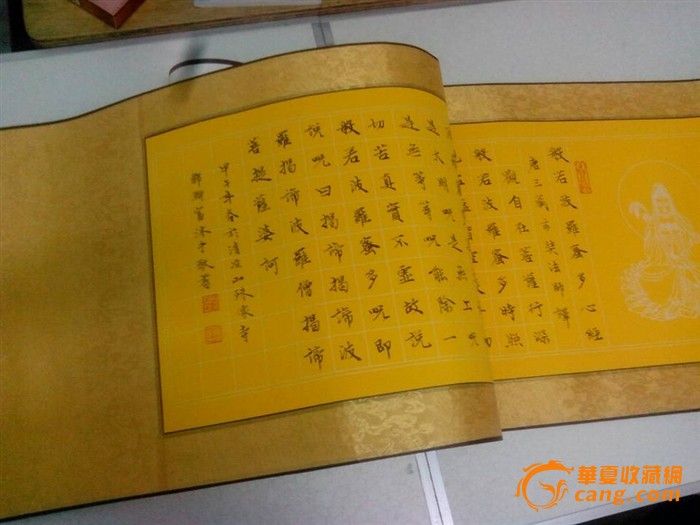 般若波羅蜜多心經
唐三藏玄奘法師譯
觀自在菩薩行深
般若波羅蜜多時照
是大明咒是無上
是無等等咒能除一
切苦真實不虛故說
般若波羅蜜多咒即
說咒曰揭諦揭諦波
羅揭諦波羅僧揭諦
菩提薩婆訶
年春於清涼山殊象寺
沐手敬書
華夏收藏網
cang.com